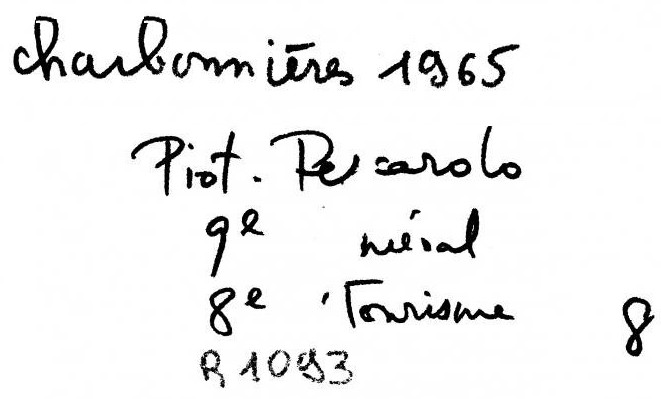 charbonnières 1965
Piot. Pescarolo
9e
8e Tourisme 8
R 1093